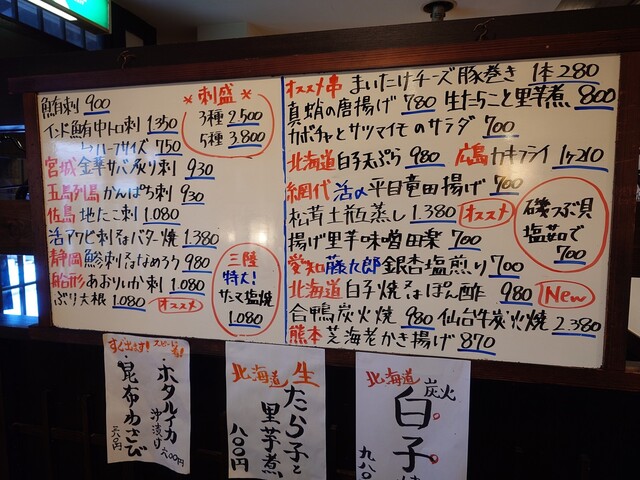 鮪刺 900
インド鮪中トロ刺 1350
〃 ハーフサイズ 750
宮城 金華サバ炙り刺 930
五島列島 かんぱち刺 930
佐島 地たこ刺 1.080
活アワビ刺 又は バター焼 1.380
静岡 鯵刺 又は なめろう 980
船形 あおりいか刺 1.080
ぶり大根 1.080 オススメ
* 刺盛 *
3種 2.500
5種 3.800
三陸
特大!
サンマ塩焼
1.080
オススメ串 まいたけチーズ豚巻き 1本280
真蛸の唐揚げ 780 生たらこと里芋煮 800
カボチャとサツマイモのサラダ 700
北海道 白子天ぷら 980 広島 カキフライ 1ヶ210
網代 活〆平目竜田揚げ 700
松茸土瓶蒸し 1.380 オススメ
揚げ里芋味噌田楽 700
愛知 藤九郎銀杏塩煎り 700
北海道 白子焼 又は ぽん酢 980 New
合鴨炭火焼 980 仙台牛炭火焼 2.380
熊本 芝海老かき揚げ 870
磯つぶ貝
塩茹で
700
すぐ出ます!
・ホタルイカ
沖漬け 六〇〇円
・昆布わさび
北海道 生
たら子と
里芋煮
八〇〇円
北海道
炭火
白子
九八〇